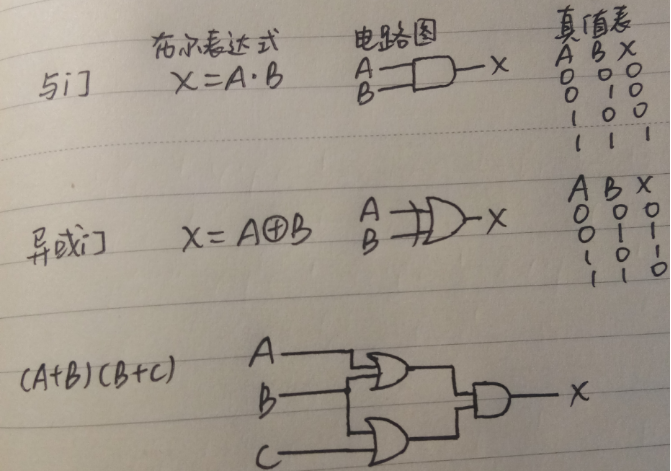 布尔表达式 电路图 真值表
与门 X=A·B A B X A B X
0 0 0
0 1 0
1 0 0
1 1 1
异或门 X=A⊕B A B X A B X
0 0 0
0 1 1
1 0 1
1 1 0
(A+B)(B+C) A B C X